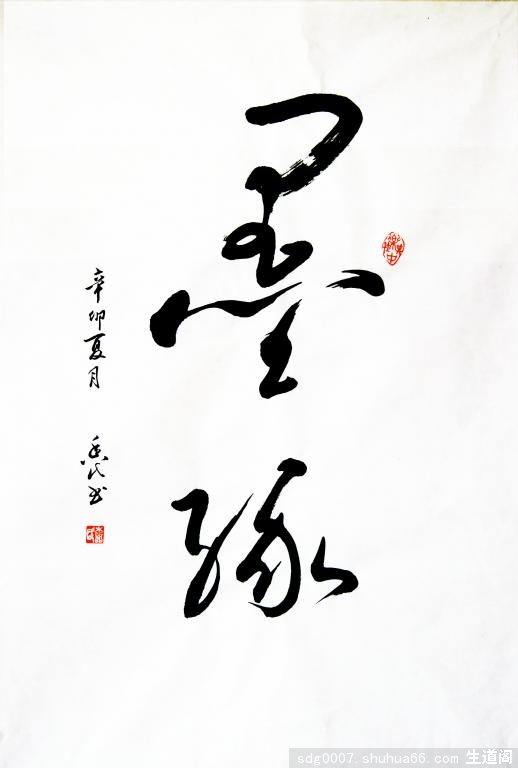 墨缘
辛卯夏月
sdg0007.shuhua66.com 生道阁